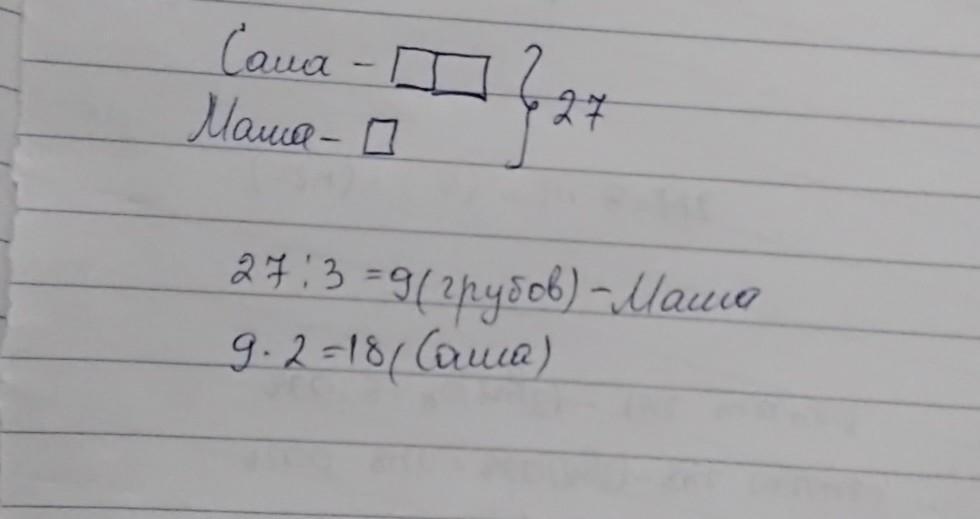 Саша -
Маша - } 27
27 : 3 = 9 (грубов) - Маша
9 · 2 = 18 (Саша)